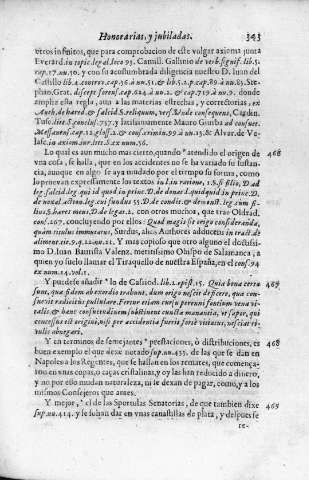 Honorarias, y jubiladas. 343
otros infinitos, que para comprobacion de este volgar axioma junta
Everard. in topic. legal. loco 95. Camill. Gallinio de verb. signif. lib. 5.
cap. 17. nu. 50. y con su acostumbrada diligencia nuestro D. Juan del
Castillo lib. 4. controv. cap. 56. à nu. 51. & lib. 5. 2. p. cap. 89. à nu. 85. Ste-
phan. Grat. discept. forens. cap. 624. à nu. 2. & cap. 719. à nu. 9. donde
amplia esta regla, aun a las materias estrechas, y correctorias, ex
Auth. de hæred. & falcid. §. reliquum, vers. Unde consequens, Cardin.
Tusc. litt. S. concl. 757. y latissimamente Marco Giurba ad consuet.
Messanens. cap. 12. gloss. 2. & cons. crimin. 99. à nu. 15. & Alvar. de Ve-
lasc. in axiom. iur. litt. S. ex num. 56.
Lo qual es aun mucho mas cierto, quando atendido el origen de 468
vna cosa, se halla, que en los accidentes no se ha variado su sustan-
cia, aunque en algo se aya mudado por el tiempo su forma, como
lo pruevan expressamente los textos in l. in ratione, 1. §. si filio, D. ad
leg. falcid. leg. id quod in princ. D. de donat. l. quidquid in princ. D.
de noxal. action. leg. cui fundus 55. D. de condit. & demonst. leg. cum fi-
lius §. hæres meus, D. de legat. 2. con otros muchos, que trae Oldrad.
cons. 207. concluyendo por ellos: Quod magis sit origo consideranda,
quàm rivulus immutatus, Surdus, alios Authores adducens in tract. de
aliment. tit. 9. q. 22. nu. 21. Y mas copioso que otro alguno el doctissi-
mo D. Juan Bautista Valenz. meritissimo Obispo de Salamanca, a
quien yo suelo llamar el Tiraquello de nuestra España, en el cons. 94
ex num. 14. vol. 1.
Y puedese añadir lo de Casiod. lib. 2. epist. 15. Quia bona certè 467
sunt, quæ fidam ab exordio trahunt, dum origo nescit deficere, quæ con-
suevit radicitus pullulare. Ferunt etiam cuncta perenni fontium vena vi-
talis, & hanc consuetudinem subtinent cuncta manantia, ut sapor, qui
concessus est origini, nisi per accidentia fuerit fortè vitiatus, nesciat ri-
vulis abnegari.
Y en terminos de semejantes prestaciones, ò distribuciones, es 468
buen exemplo el que dexè notado sup. nu. 435. de las que se dàn en
Napoles a los Regentes, que se hallan en los remates, que comença-
ron en vnas copas, o caças cristalinas, y oy las han reducido a dinero,
y no por esso mudan naturaleza, ni le dexan de pagar, como, y a los
mismos Consejeros que antes.
Y mejor, el de las Sportulas Senatorias, de que tambien dixe 469
sup. nu. 414. y se solian dar en vnas canastillas de plata, y despues se
re-